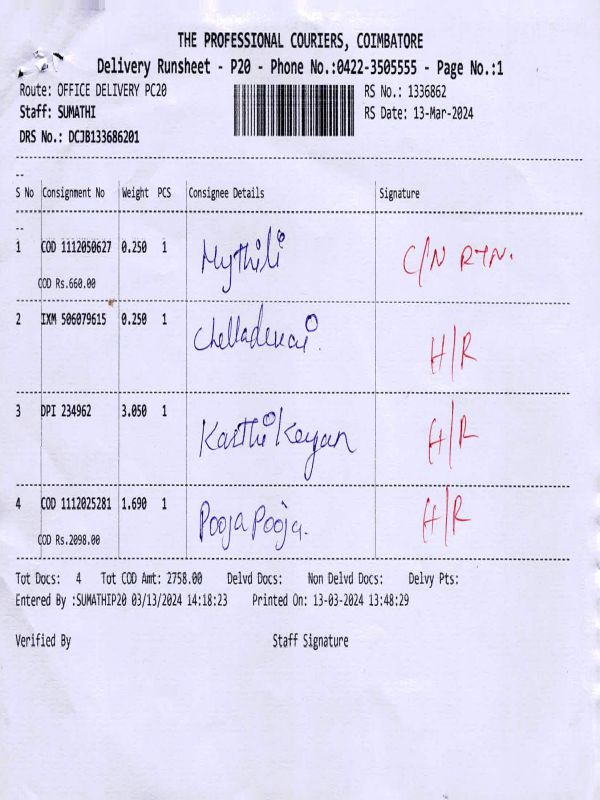 THE PROFESSIONAL COURIERS, COIMBATORE
Delivery Runsheet - P20 - Phone No.:0422-3505555 - Page No.:1
Route: OFFICE DELIVERY PC20 RS No.: 1336862
Staff: SUMATHI RS Date: 13-Mar-2024
DRS No.: DCJB133686201
--
S No Consignment No Weight PCS Consignee Details Signature
--
1 COD 1112050627 0.250 1 Mythili C/N RTN.
COD Rs.660.00
2 IXM 506079615 0.250 1 Chelladurai. H/R
3 DPI 234962 3.050 1 KarthiKeyan H/R
4 COD 1112025281 1.690 1 Pooja Pooja. H/R
COD Rs.2098.00
Tot Docs: 4 Tot COD Amt: 2758.00 Delvd Docs: Non Delvd Docs: Delvy Pts:
Entered By :SUMATHIP20 03/13/2024 14:18:23 Printed On: 13-03-2024 13:48:29
Verified By Staff Signature